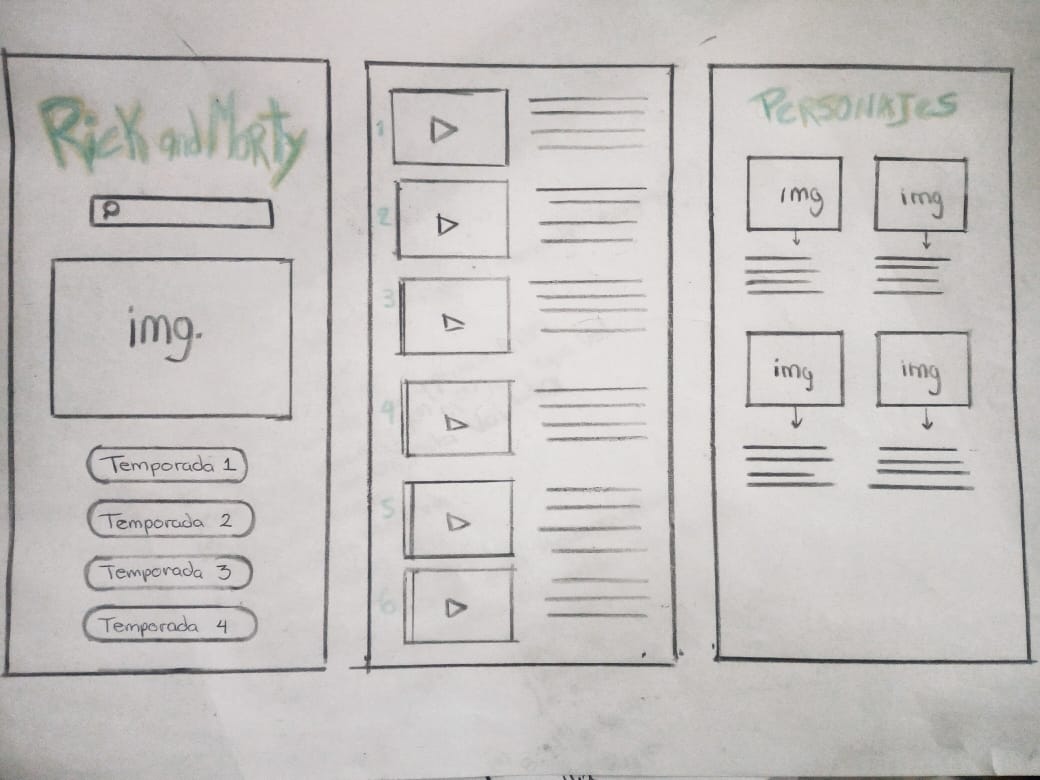 Rick and Morty
img.
Temporada 1
Temporada 2
Temporada 3
Temporada 4
1
2
3
4
5
6
PERSONAJES
img img
img img